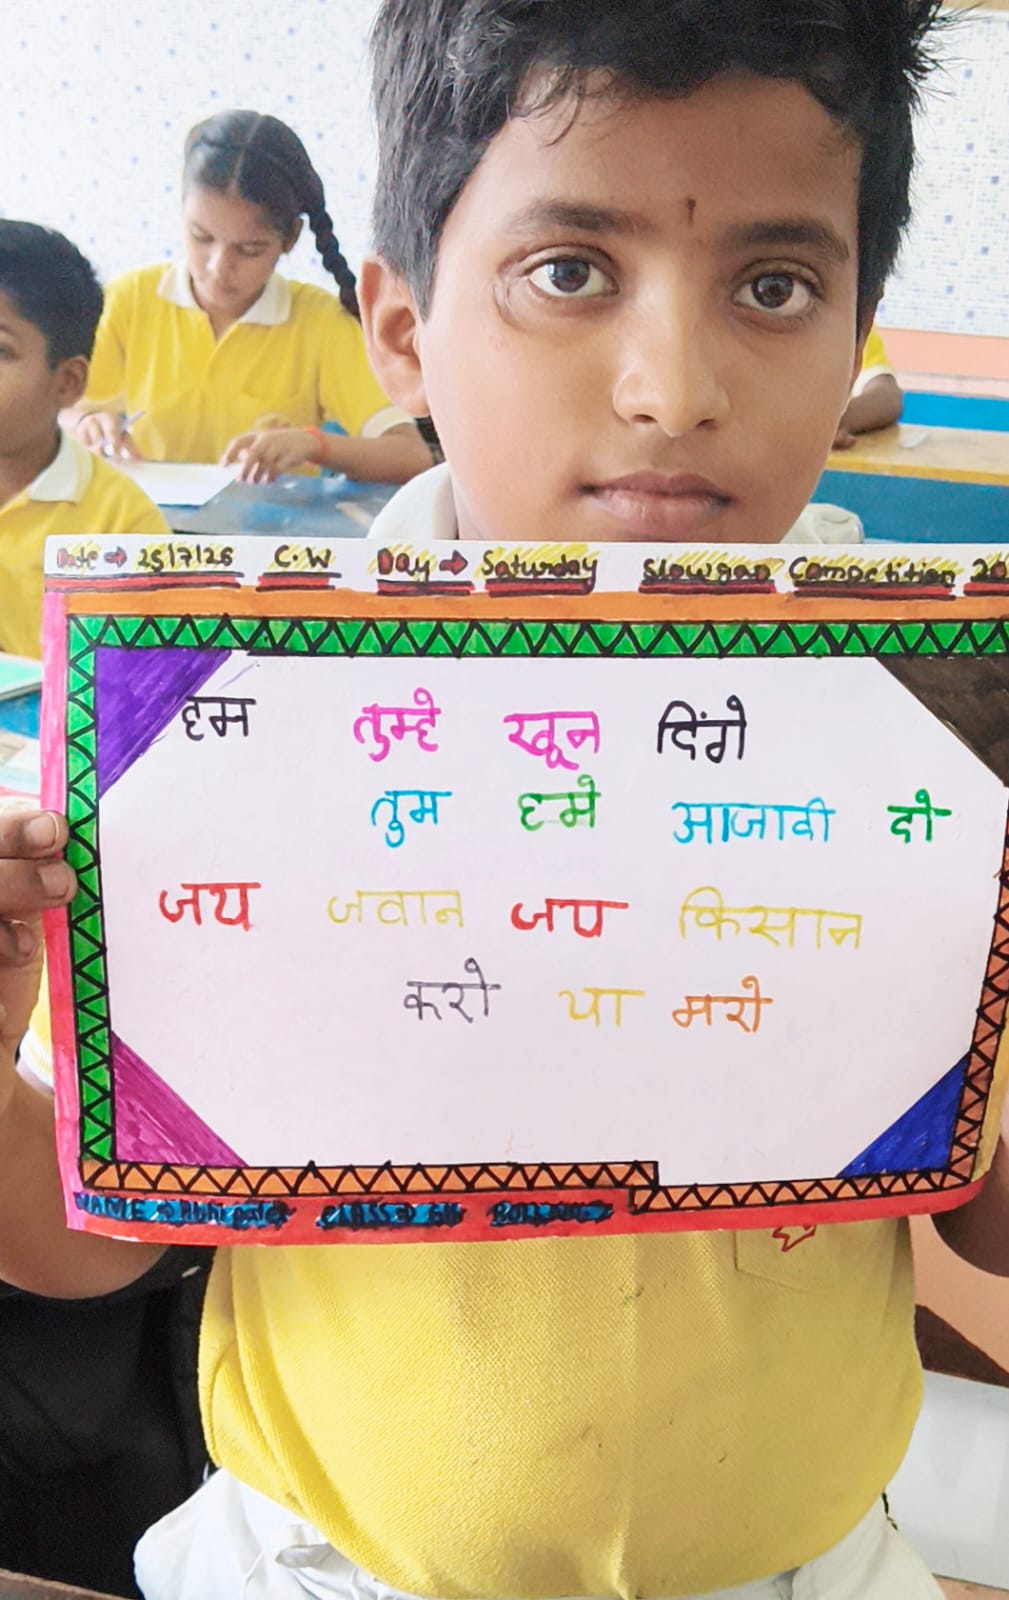 Date → 25/7/26 C.W Day → Saturday Slowgan Competition 20
हम तुम्हे खून दिंगे
तुम हमे आजादी दो
जय जवान जय किसान
करो या मरो
NAME → Abhi CLASS → 6th